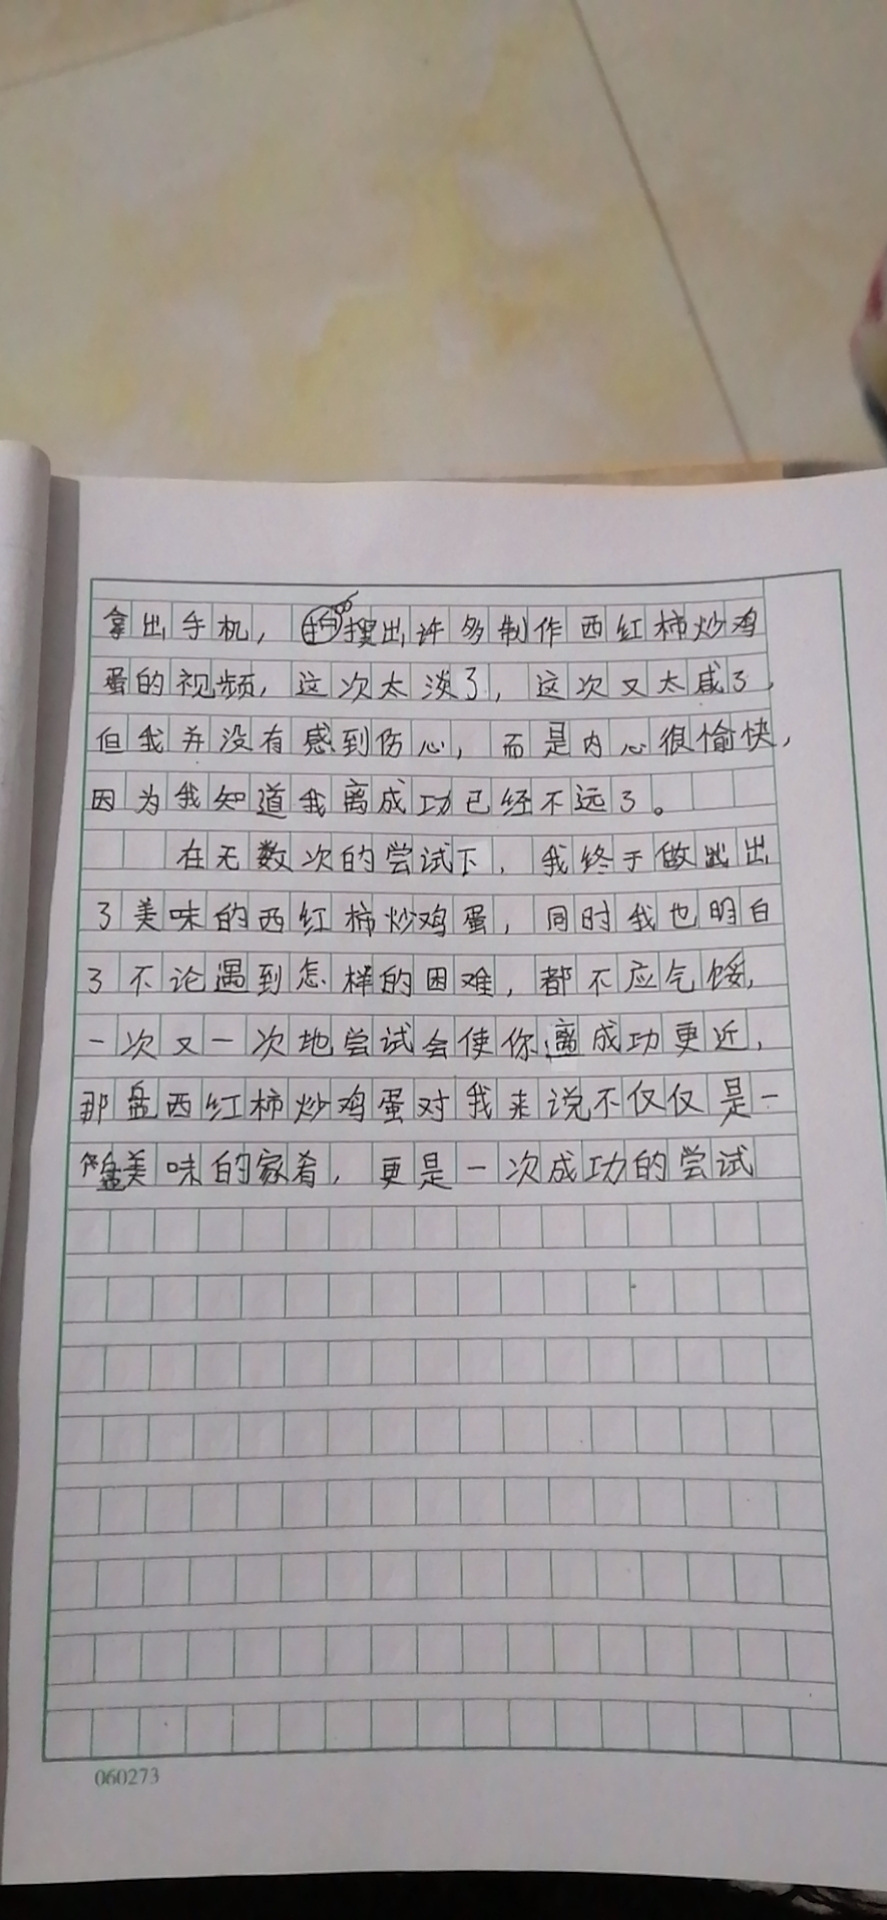 拿出手机，搜出许多制作西红柿炒鸡
蛋的视频，这次太淡了，这次又太咸了，
但我并没有感到伤心，而是内心很愉快，
因为我知道我离成功已经不远了。
在无数次的尝试下，我终于做出
了美味的西红柿炒鸡蛋，同时我也明白
了不论遇到怎样的困难，都不应气馁，
一次又一次地尝试会使你离成功更近，
那盘西红柿炒鸡蛋对我来说不仅仅是一
盘美味的家肴，更是一次成功的尝试
060273